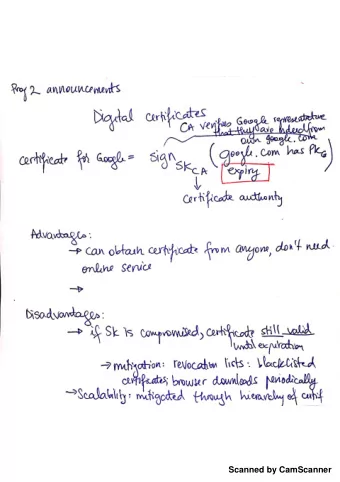 Proj 2 announcements
Digital certificates
CA verifies Google representative
that they are indeed from
own google.com
certificate for Google = sign SK CA (google.com has PKG
expiry)
certificate authority
Advantages:
→ can obtain certificate from anyone, don't need
online service
→
Disadvantages:
→ if SK is compromised, certificate still valid
until expiration
→ mitigation: revocation lists: blacklisted
certificates; browser downloads periodically
→ Scalability: mitigated through hierarchy of certif
Scanned by CamScanner